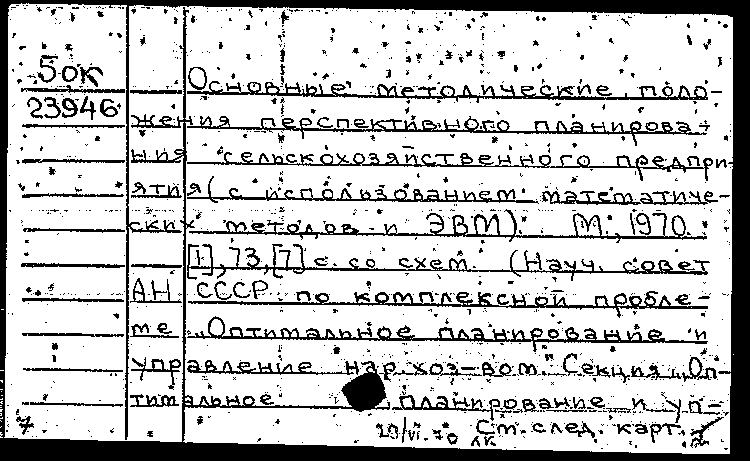 5ок
23946
Основные методические поло-
жения перспективного планирова-
ния сельскохозяйственного предпри-
ятия (с использованием математиче-
ских методов и ЭВМ). М., 1970.
[1], 73, [7] с. со схем. (Науч. совет
АН СССР по комплексной пробле-
ме „Оптимальное планирование и
управление нар. хоз-вом." Секция „Оп-
тимальное планирование и уп-
См. след. карт.